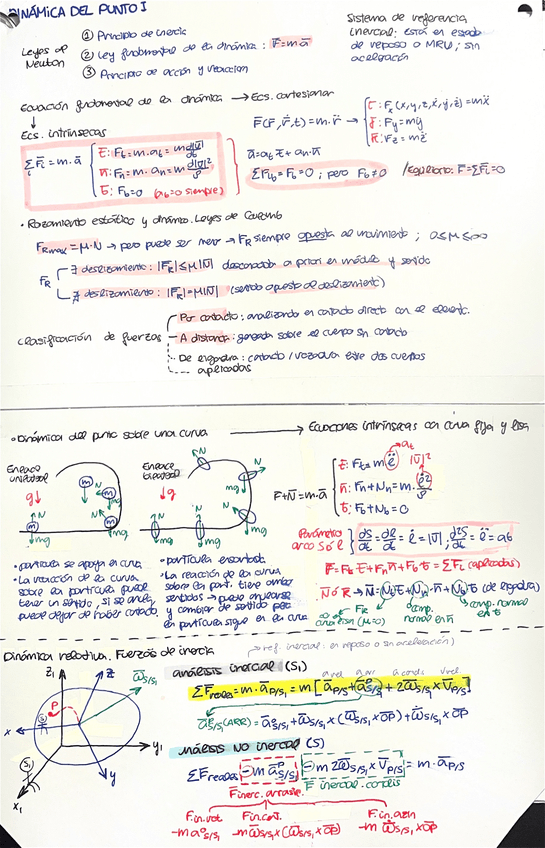 DINÁMICA DEL PUNTO I
Leyes de Newton
① Principio de inercia
② Ley fundamental de la dinámica: F̄=m ā
③ Principio de acción y reacción
Sistema de referencia
inercial: está en estado
de reposo o MRU; sin
aceleración
Ecuación fundamental de la dinámica → Ecs. cartesianas
F̄(r̄, r̄̇, t) = m·r̄̈
ī: Fx(x, y, z, ẋ, ẏ, ż) = mẍ
j̄: Fy = mÿ
k̄: Fz = mz̈
Ecs. intrínsecas
∑ F̄i = m·ā
t̄: Ft = m·at = m d|v̄|/dt
n̄: Fn = m·an = m |v̄|²/ρ
b̄: Fb = 0 (ab = 0 siempre)
ā = at t̄ + an·n̄
∑Fib = Fb = 0; pero Fb ≠ 0
/Equilibrio: F̄ = ∑F̄i = 0
• Rozamiento estático y dinámico. Leyes de Coulomb
FRmax = μ·N → pero puede ser menor → FR siempre opuesta al movimiento; 0≤μ≤∞
F̄R
∄ deslizamiento: |F̄R| ≤ μ|N̄| desconocida a priori en módulo y sentido
∃ deslizamiento: |F̄R| = μ|N̄| (sentido opuesto al deslizamiento)
Clasificación de fuerzas
Por contacto: analizando en contacto directo con el element.
A distancia: generada sobre el cuerpo sin contacto
De ligadura: contacto / entre dos cuerpos
aplicadas
• Dinámica del punto sobre una curva → Ecuaciones intrínsecas con curva fija y lisa
Enlace unilateral
Enlace bilateral
g
N
m
mg
F̄+N̄ = m·ā
t̄: Ft = m s̈
at
n̄: Fn + Nn = m· ṡ²/ρ
|v̄|²
b̄: Fb + Nb = 0
Parámetro
arco S ó l
dS/dt = dl/dt = l̇ = |v̄|; d²S/dt² = l̈ = at
F̄ = Ft·t̄ + Fn n̄ + Fb·b̄ = ∑F̄i (aplicadas)
N̄ ó R̄ → N̄ = Nt t̄ + Nn·n̄ + Nb b̄ (de ligadura)
FR
comp. normal en n̄
comp. normal en b̄
• partícula se apoya en curva
• La reacción de la curva
sobre la partícula puede
tener un sentido, si se anula,
puede dejar de haber contacto
• partícula ensartada
• La reacción de la curva
sobre la part. tiene ambos
sentidos → puede anularse
y cambiar de sentido pero
la partícula sigue en la curva
Dinámica relativa. Fuerzas de inercia
ref. inercial: en reposo o sin aceleración)
análisis inercial (S₁)
∑F̄reales = m·ā P/S₁ = m [ā P/S + ā P S/S₁ + 2ω̄ S/S₁ × v̄ P/S]
ā P S/S₁ (ARR) = ā O S/S₁ + ω̄ S/S₁ × (ω̄ S/S₁ × O̅P̅) + ω̄̇ S/S₁ × O̅P̅
Análisis NO inercial (S)
∑F̄reales − m ā P S/S₁ − m 2ω̄ S/S₁ × v̄ P/S = m·ā P/S
F̄ inercial coriolis
F̄inerc. arrastre.
−m ā O S/S₁
−m ω̄ S/S₁ × (ω̄ S/S₁ × O̅P̅)
−m ω̄̇ S/S₁ × O̅P̅
z₁
z
ω̄ S/S₁
P
x
y₁
y
S₁
x₁